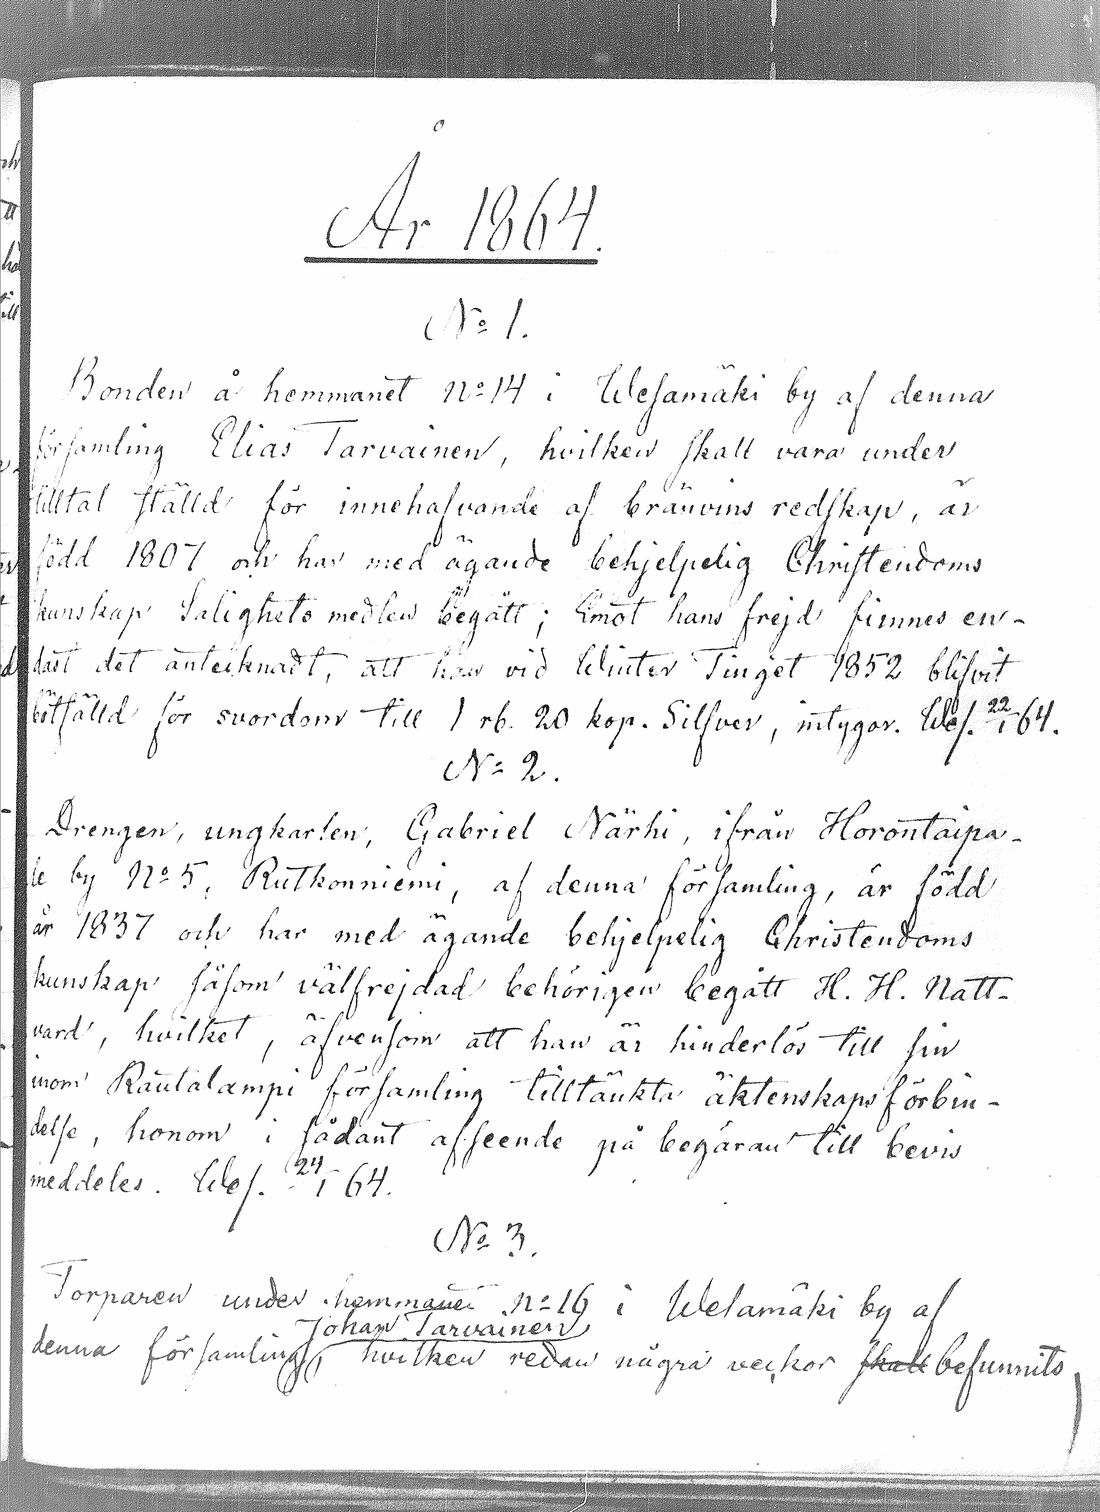 År 1864.
No 1.
Bonden å hemmanet No 14 i Wesamäki by af denna
församling Elias Tarvainen, hvilken skall vara under
tilltal ställd för innehafvande af bränvins redskap, är
född 1807 och har med ägande behjelpelig Christendoms
kunskap Salighets medlen begått; Emot hans frejd finnes en-
dast det antecknadt, att han vid Winter Tinget 1852 blifvit
bötfälld för svordom till 1 rb. 20 kop. Silfver, intygar. Wes. 22/1 64.
No 2.
Drengen, ungkarlen, Gabriel Närhi, ifrån Horontaipa-
le by No 5, Rutkonniemi, af denna församling, är född
år 1837 och har med ägande behjelpelig Christendoms
kunskap såsom välfrejdad behörigen begått H. H. Natt-
vard, hvilket, äfvensom att han är hinderlös till sin
inom Rautalampi församling tilltänkta äktenskapsförbin-
delse, honom i sådant afseende på begäran till bevis
meddeles. Wes. 24/1 64.
No 3.
Torparen under hemmanet No 16 i Wesamäki by af
Johan Tarvainen
denna församling, hvilken redan några veckor skall befunnits